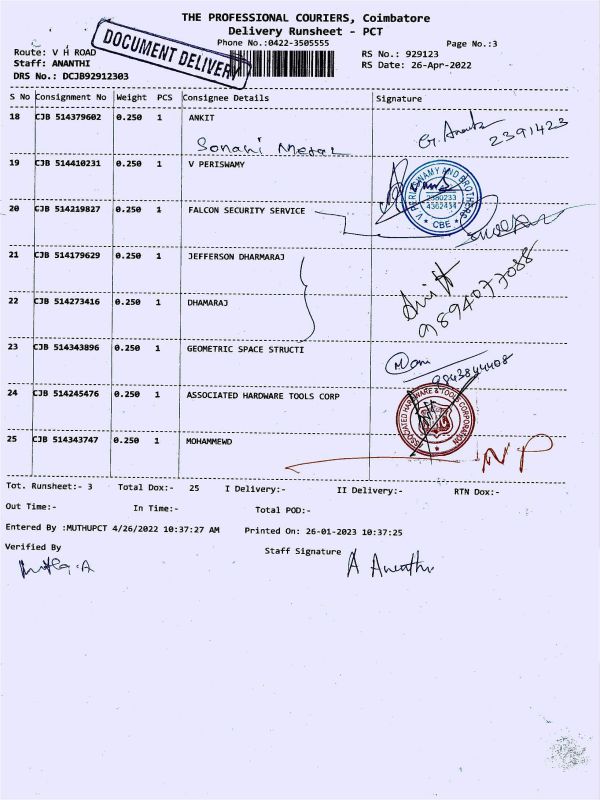 THE PROFESSIONAL COURIERS, Coimbatore
Delivery Runsheet - PCT
Phone No.:0422-3505555
Page No.:3
Route: V H ROAD
Staff: ANANTHI
DRS No.: DCJB92912303
DOCUMENT DELIVERY
RS No.: 929123
RS Date: 26-Apr-2022
S No Consignment No Weight PCS Consignee Details Signature
18 CJB 514379602 0.250 1 ANKIT
2391423
19 CJB 514410231 0.250 1 V PERISWAMY
2380233
4382434
CBE
20 CJB 514219827 0.250 1 FALCON SECURITY SERVICE
21 CJB 514179629 0.250 1 JEFFERSON DHARMARAJ
22 CJB 514273416 0.250 1 DHAMARAJ
9894077088
23 CJB 514343896 0.250 1 GEOMETRIC SPACE STRUCTI
Mani
9843844408
24 CJB 514245476 0.250 1 ASSOCIATED HARDWARE TOOLS CORP
ASSOCIATED HARDWARE & TOOLS CORPORATION
25 CJB 514343747 0.250 1 MOHAMMEWD
NP
Tot. Runsheet:- 3 Total Dox:- 25 I Delivery:- II Delivery:- RTN Dox:-
Out Time:- In Time:- Total POD:-
Entered By :MUTHUPCT 4/26/2022 10:37:27 AM Printed On: 26-01-2023 10:37:25
Verified By Staff Signature
A Ananthi